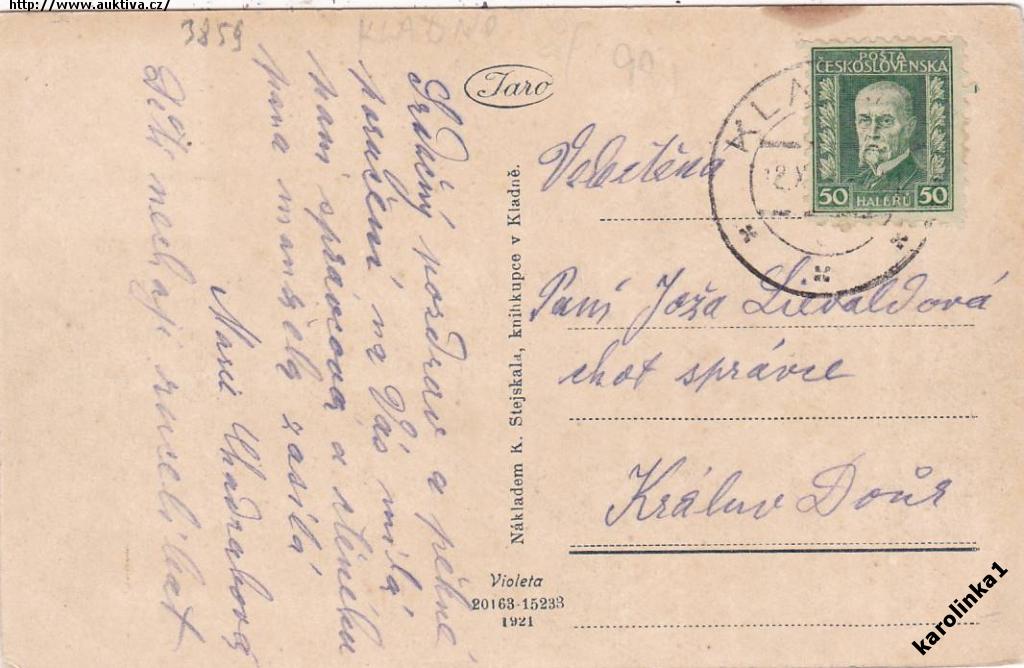 http://www.auktiva.cz/
3859
KLADNO
90
Taro
Srdečný pozdrav a pěkné
poručení na Vás milá
paní správcová a
pana manžela zasílá
Marie Chadrabová
Děti nechají ruce líbat
Nákladem K. Stejskala, knihkupce v Kladně.
Violeta
20163-15233
1921
POŠTA
ČESKOSLOVENSKA
50 HALÉŘŮ 50
KLA
Velectěná
Paní Joža Liewaldová
chot správce
Králův Dvůr
karolinka1